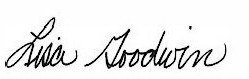 Lisa Goodwin